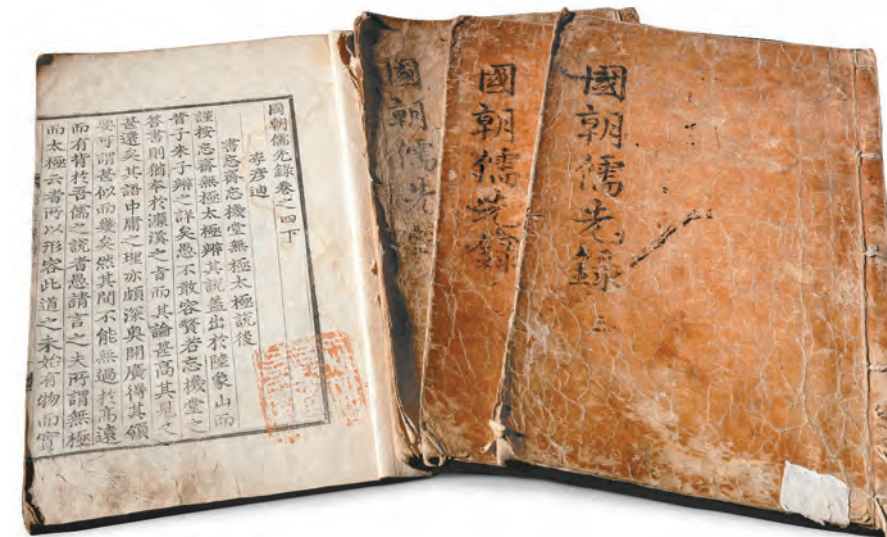 國朝儒先錄卷之四下
李彦迪
書忘齋忘機堂無極太極說後
謹按忘齋無極太極辨其說蓋出於陸象山而
昔子朱子辨之詳矣愚不敢容贅若忘機堂之
答書則猶本於濂溪之旨而其論甚高其見又
甚遠矣其語中庸之理亦頗深奧開廣得其領
要可謂甚似而幾矣然其間不能無過於高遠
而有背於吾儒之說者愚請言之夫所謂無極
而太極云者所以形容此道之未始有物而實
國朝儒先錄
國朝儒先錄
國朝儒先錄